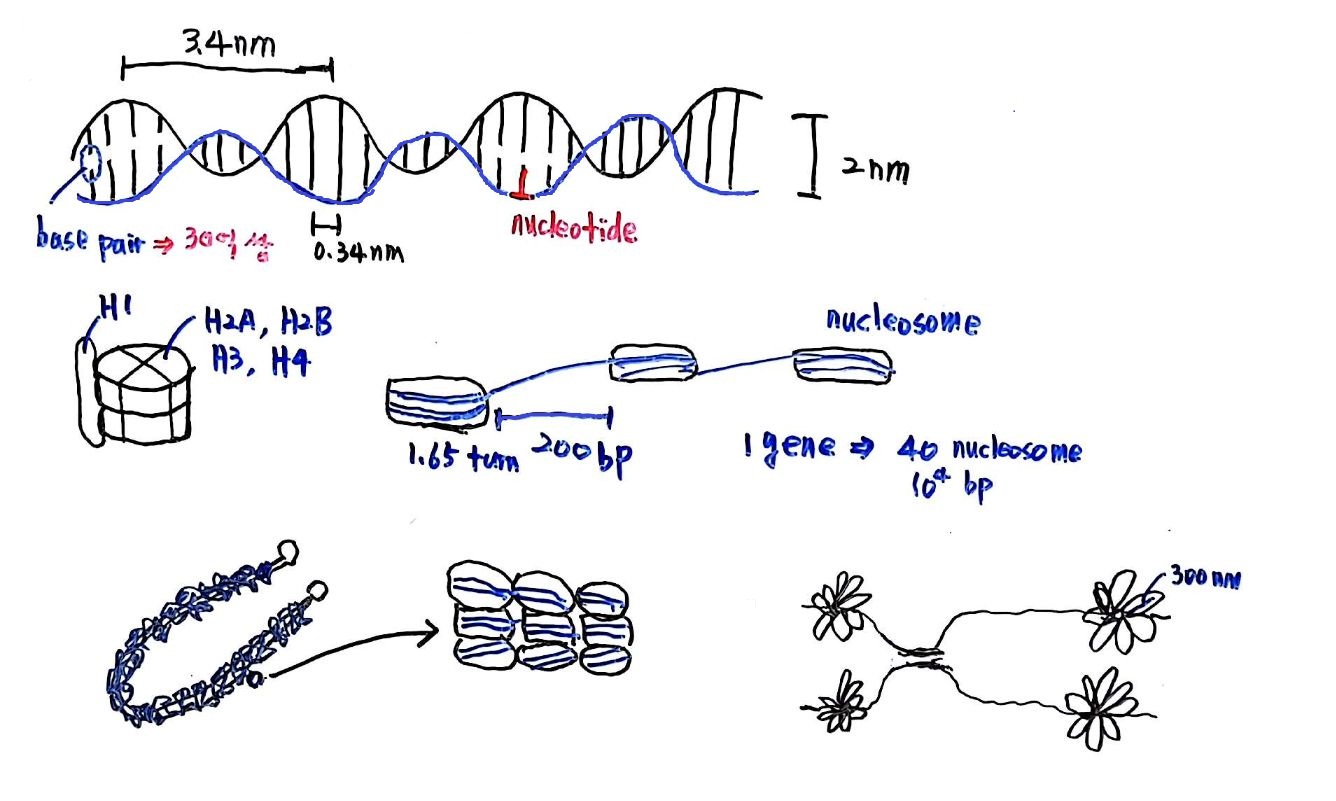 3.4nm
2nm
base pair ⇒ 30억 쌍
0.34nm
nucleotide
H1
H2A, H2B
H3, H4
nucleosome
1.65 turn
200bp
1 gene ⇒ 40 nucleosome
10⁴ bp
300nm